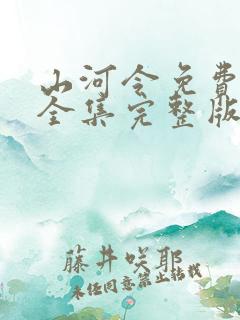 山河令免费
全集完整版
藤井咲耶
未经同意禁止转载